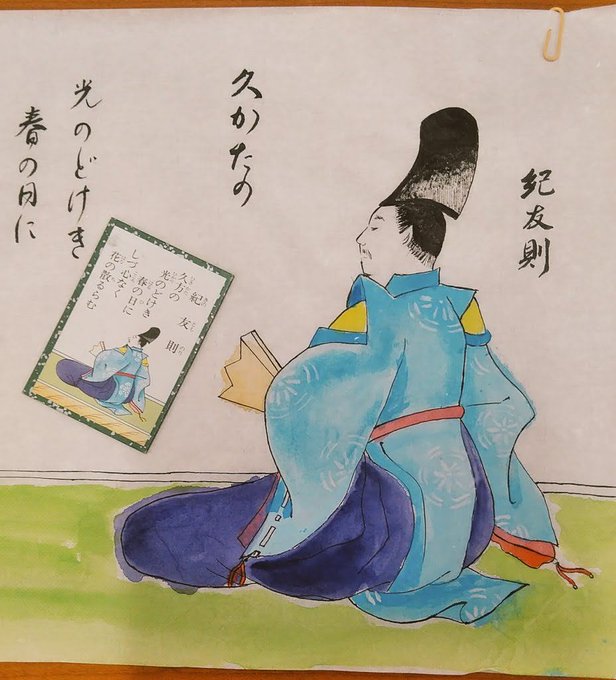 紀友則
久かたの
光のどけき
春の日に
紀友則
久方の
光のどけき
春の日に
しづ心なく
花の散るらむ